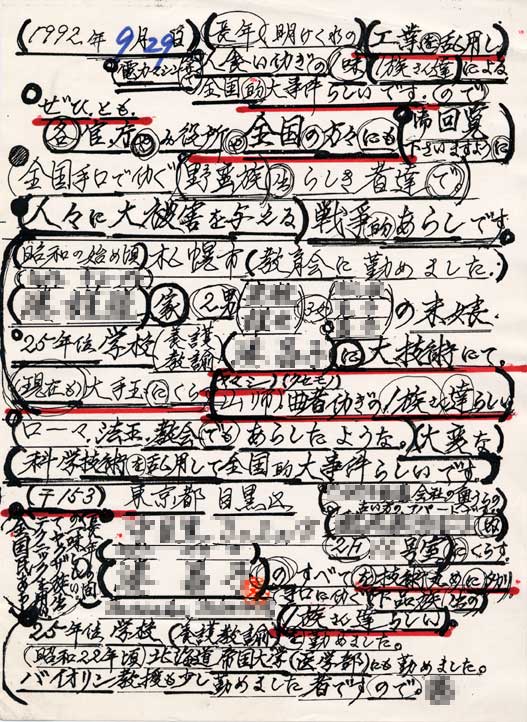 (1992.年9月29日)(長年の明けくれの(工業を乱用し
電力マシン 人食い仂ぎの(一味)(族さん達)による
全国的大事件らしいです。(ので
ぜひ、とも、
各官庁やみ役所や全国の方々にも(御回覧下さいますように
(全国手口で仂ぐ(野蛮族)らしき者達で。
(人々に大被害を与える)戦争的あらしです。
(昭和の始め頃)札幌市(教育会に勤めました。)
家(2男 3女 の末娘、
25年位学校(養護教諭 に大技術にて。
(現在も)大手玉にくら(ヤマシー)(クセモノ)(山師)曲者仂ぎの(族さん達らしい
ローマ、法王、教会(でも)あらしたような。(大変な)
(科学技術を乱用して全国的大事件らしいです。
(〒153) 東京都 目黒区 会社の重らの
古い方のアパートに
号室にくらす
のすべて
手口に仂く(下品族位の
(族さん達らしい)
25年位学校(養護教諭)勤めました。
(昭和22年頃)北海道帝国大学(医学部)にも勤めました。
バイオリン教授も少し勤めました者ですので。